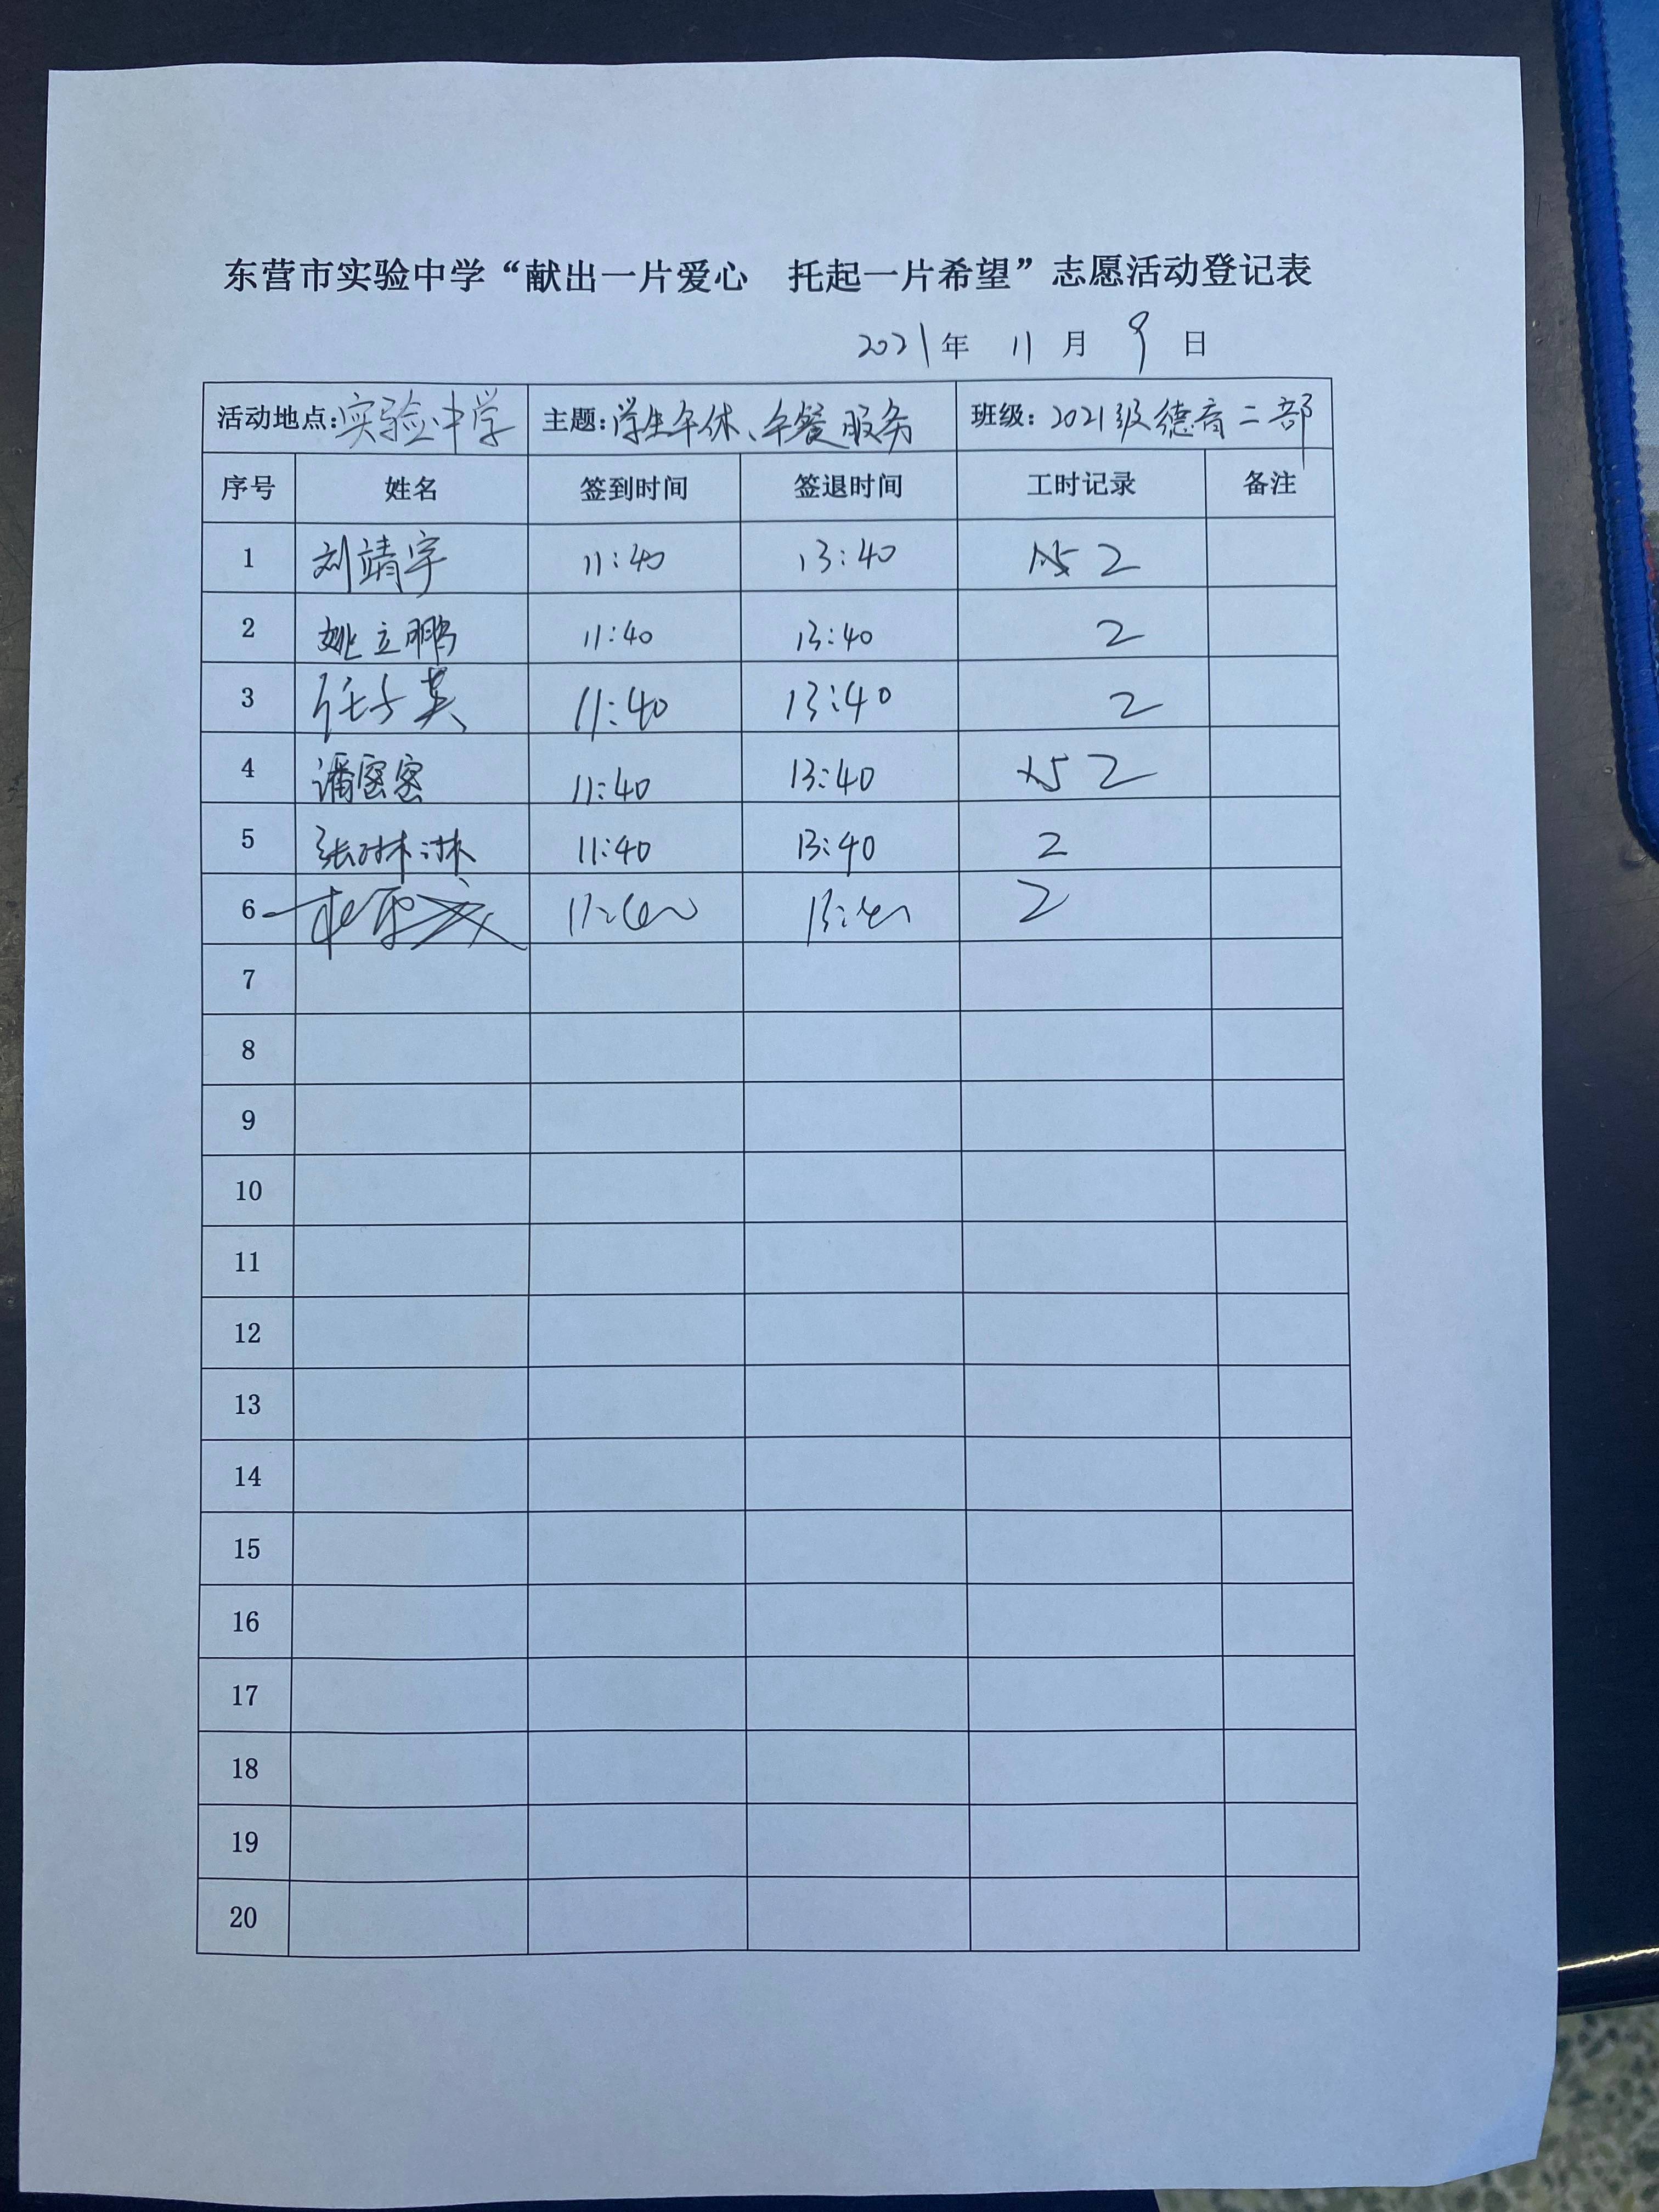 东营市实验中学“献出一片爱心 托起一片希望”志愿活动登记表
2021年 11 月 9 日
活动地点:实验中学 主题:学生午休、午餐服务 班级:2021级德育二部
序号 姓名 签到时间 签退时间 工时记录 备注
1 刘靖宇 11:40 13:40 1.5 2
2 姚立鹏 11:40 13:40 2
3 任子英 11:40 13:40 2
4 潘密密 11:40 13:40 1.5 2
5 张琳琳 11:40 13:40 2
6 11:40 13:40 2
7
8
9
10
11
12
13
14
15
16
17
18
19
20